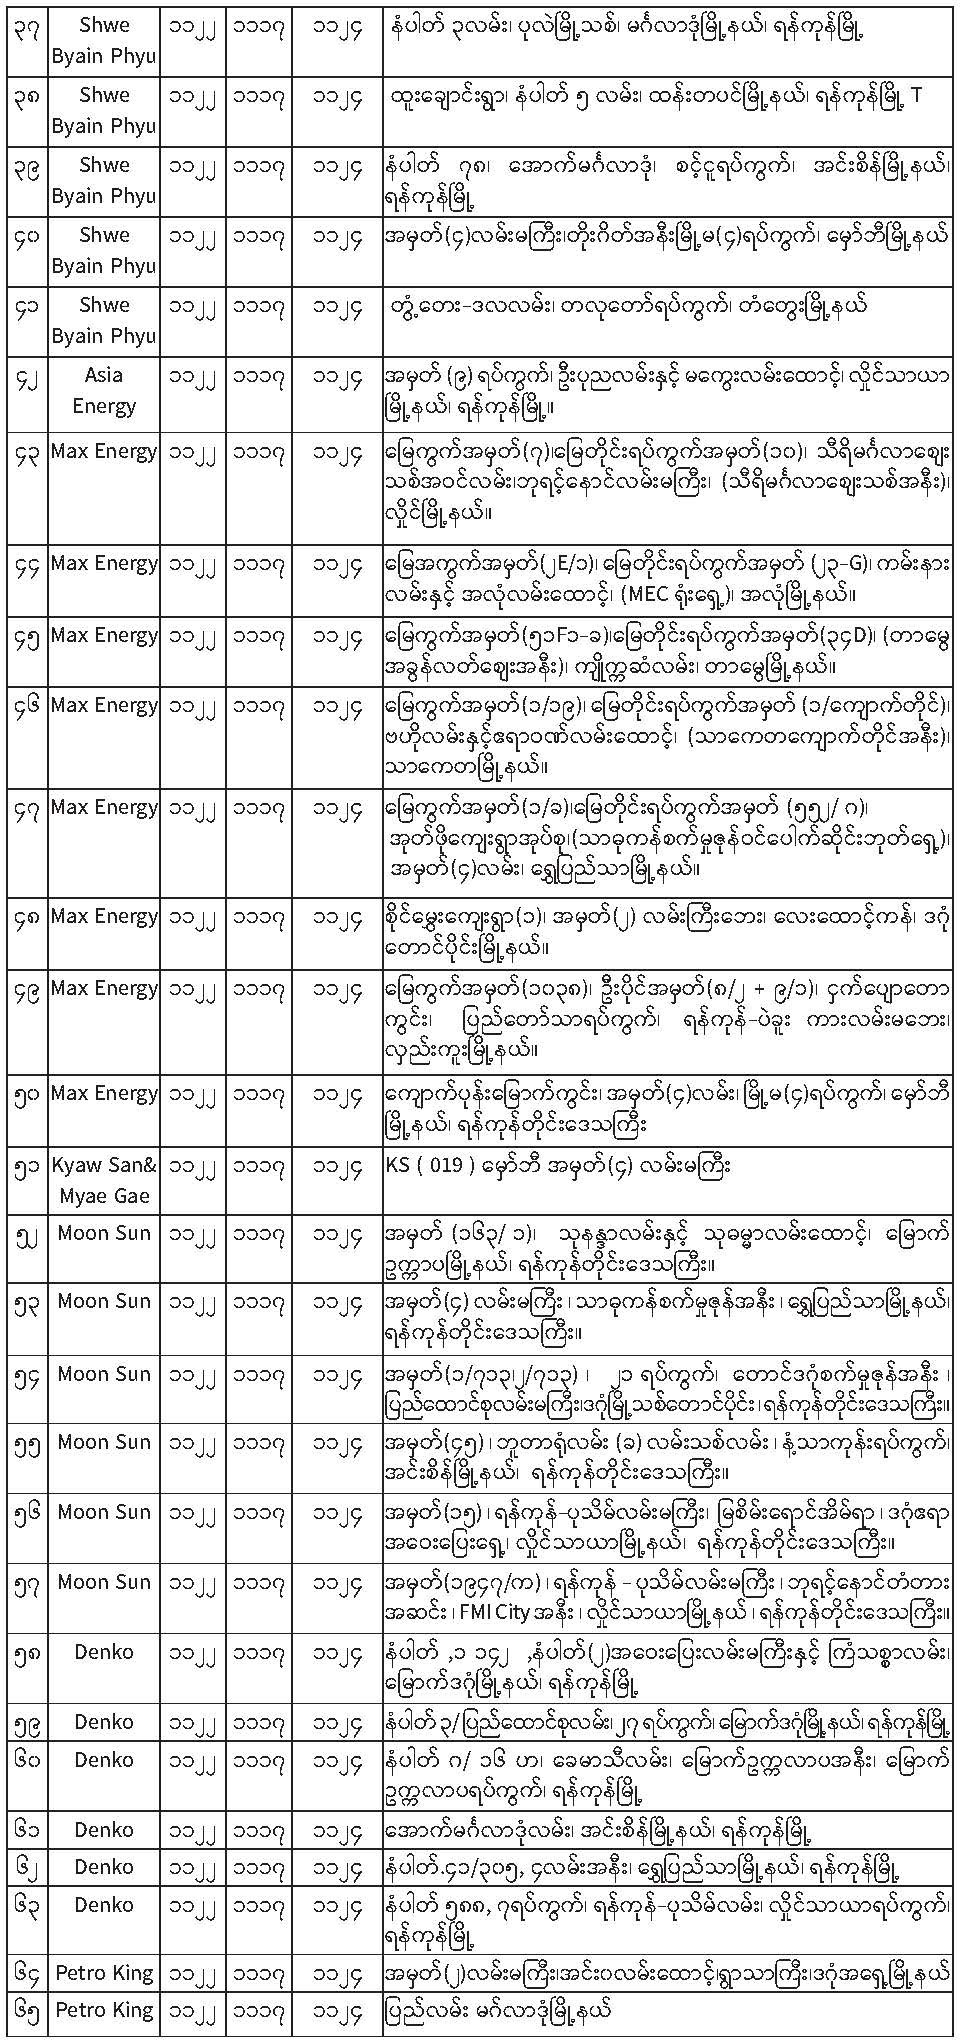 ၃၇ Shwe ၁၁၂၂ ၁၁၁၇ ၁၁၂၄ နံပါတ် ၃လမ်း၊ ပုလဲမြို့သစ်၊ မင်္ဂလာဒုံမြို့နယ်၊ ရန်ကုန်မြို့
Byain Phyu
၃၈ Shwe ၁၁၂၂ ၁၁၁၇ ၁၁၂၄ ထူးချောင်းရွာ၊ နံပါတ် ၅ လမ်း၊ ထန်းတပင်မြို့နယ်၊ ရန်ကုန်မြို့ T
Byain Phyu
၃၉ Shwe ၁၁၂၂ ၁၁၁၇ ၁၁၂၄ နံပါတ် ၇၈၊ အောက်မင်္ဂလာဒုံ၊ စင့်ငူရပ်ကွက်၊ အင်းစိန်မြို့နယ်၊
Byain Phyu ရန်ကုန်မြို့
၄၀ Shwe ၁၁၂၂ ၁၁၁၇ ၁၁၂၄ အမှတ်(၄)လမ်းမကြီး၊တိုးဂိတ်အနီးမြို့မ(၄)ရပ်ကွက်၊ မှော်ဘီမြို့နယ်
Byain Phyu
၄၁ Shwe ၁၁၂၂ ၁၁၁၇ ၁၁၂၄ တွံ့တေး-ဒလလမ်း၊ တလုတော်ရပ်ကွက်၊ တံတွေးမြို့နယ်
Byain Phyu
၄၂ Asia ၁၁၂၂ ၁၁၁၇ ၁၁၂၄ အမှတ် (၉) ရပ်ကွက်၊ ဦးပုညလမ်းနှင့် မကွေးလမ်းထောင့်၊ လှိုင်သာယာ
Energy မြို့နယ်၊ ရန်ကုန်မြို့။
၄၃ Max Energy ၁၁၂၂ ၁၁၁၇ ၁၁၂၄ မြေကွက်အမှတ်(၇)၊မြေတိုင်းရပ်ကွက်အမှတ်(၁၀)၊ သီရိမင်္ဂလာဈေး
သစ်အဝင်လမ်း၊ဘုရင့်နောင်လမ်းမကြီး၊ (သီရိမင်္ဂလာဈေးသစ်အနီး)၊
လှိုင်မြို့နယ်။
၄၄ Max Energy ၁၁၂၂ ၁၁၁၇ ၁၁၂၄ မြေအကွက်အမှတ်(၂E/၁)၊ မြေတိုင်းရပ်ကွက်အမှတ် (၂၃-G)၊ ကမ်းနား
လမ်းနှင့် အလုံလမ်းထောင့်၊ (MEC ရုံးရှေ့)၊ အလုံမြို့နယ်။
၄၅ Max Energy ၁၁၂၂ ၁၁၁၇ ၁၁၂၄ မြေကွက်အမှတ်(၅၁F၁-ခ)၊မြေတိုင်းရပ်ကွက်အမှတ်(၃၄D)၊ (တာမွေ
အခွန်လတ်ဈေးအနီး)၊ ကျိုက္ကဆံလမ်း၊ တာမွေမြို့နယ်။
၄၆ Max Energy ၁၁၂၂ ၁၁၁၇ ၁၁၂၄ မြေကွက်အမှတ်(၁/၁၉)၊ မြေတိုင်းရပ်ကွက်အမှတ် (၁/ကျောက်တိုင်)၊
ဗဟိုလမ်းနှင့်ဧရာဝဏ်လမ်းထောင့်၊ (သာကေတကျောက်တိုင်အနီး)၊
သာကေတမြို့နယ်။
၄၇ Max Energy ၁၁၂၂ ၁၁၁၇ ၁၁၂၄ မြေကွက်အမှတ်(၁/ခ)၊မြေတိုင်းရပ်ကွက်အမှတ် (၅၅၂/ ဂ)၊
အုတ်ဖိုကျေးရွာအုပ်စု၊(သာဓုကန်စက်မှုဇုန်ဝင်ပေါက်ဆိုင်းဘုတ်ရှေ့)၊
အမှတ်(၄)လမ်း၊ ရွှေပြည်သာမြို့နယ်။
၄၈ Max Energy ၁၁၂၂ ၁၁၁၇ ၁၁၂၄ စိုင်မွှေးကျေးရွာ(၁)၊ အမှတ်(၂) လမ်းကြီးဘေး၊ လေးထောင့်ကန်၊ ဒဂုံ
တောင်ပိုင်းမြို့နယ်။
၄၉ Max Energy ၁၁၂၂ ၁၁၁၇ ၁၁၂၄ မြေကွက်အမှတ်(၁၀၃၈)၊ ဦးပိုင်အမှတ်(၈/၂ + ၉/၁)၊ ငှက်ပျောတော
ကွင်း၊ ပြည်တော်သာရပ်ကွက်၊ ရန်ကုန်-ပဲခူး ကားလမ်းမဘေး၊
လှည်းကူးမြို့နယ်။
၅၀ Max Energy ၁၁၂၂ ၁၁၁၇ ၁၁၂၄ ကျောက်ပုန်းမြောက်ကွင်း၊ အမှတ်(၄)လမ်း၊မြို့မ(၄)ရပ်ကွက်၊ မှော်ဘီ
မြို့နယ်၊ ရန်ကုန်တိုင်းဒေသကြီး
၅၁ Kyaw San& ၁၁၂၂ ၁၁၁၇ ၁၁၂၄ KS ( 019 ) မှော်ဘီ အမှတ်(၄) လမ်းမကြီး
Myae Gae
၅၂ Moon Sun ၁၁၂၂ ၁၁၁၇ ၁၁၂၄ အမှတ် (၁၆၃/ ၁)၊ သုနန္ဒာလမ်းနှင့် သုဓမ္မာလမ်းထောင့်၊ မြောက်
ဥက္ကာပမြို့နယ်၊ ရန်ကုန်တိုင်းဒေသကြီး။
၅၃ Moon Sun ၁၁၂၂ ၁၁၁၇ ၁၁၂၄ အမှတ်(၄) လမ်းမကြီး ၊ သာဓုကန်စက်မှုဇုန်အနီး ၊ ရွှေပြည်သာမြို့နယ်၊
ရန်ကုန်တိုင်းဒေသကြီး။
၅၄ Moon Sun ၁၁၂၂ ၁၁၁၇ ၁၁၂၄ အမှတ်(၁/၇၁၃၊၂/၇၁၃) ၊ ၂၁ ရပ်ကွက်၊ တောင်ဒဂုံစက်မှုဇုန်အနီး ၊
ပြည်ထောင်စုလမ်းမကြီး၊ဒဂုံမြို့သစ်တောင်ပိုင်း ၊ ရန်ကုန်တိုင်းဒေသကြီး။
၅၅ Moon Sun ၁၁၂၂ ၁၁၁၇ ၁၁၂၄ အမှတ်(၄၅) ၊ ဘူတာရုံလမ်း (ခ) လမ်းသစ်လမ်း ၊ နံ့သာကုန်းရပ်ကွက်၊
အင်းစိန်မြို့နယ်၊ ရန်ကုန်တိုင်းဒေသကြီး။
၅၆ Moon Sun ၁၁၂၂ ၁၁၁၇ ၁၁၂၄ အမှတ်(၁၅) ၊ ရန်ကုန်-ပုသိမ်လမ်းမကြီး၊ မြစိမ်းရောင်အိမ်ရာ ၊ ဒဂုံဧရာ
အဝေးပြေးရှေ့၊ လှိုင်သာယာမြို့နယ်၊ ရန်ကုန်တိုင်းဒေသကြီး။
၅၇ Moon Sun ၁၁၂၂ ၁၁၁၇ ၁၁၂၄ အမှတ်(၁၉၄၇/က) ၊ ရန်ကုန် – ပုသိမ်လမ်းမကြီး ၊ ဘုရင့်နောင်တံတား
အဆင်း ၊ FMI City အနီး ၊ လှိုင်သာယာမြို့နယ် ၊ ရန်ကုန်တိုင်းဒေသကြီး။
၅၈ Denko ၁၁၂၂ ၁၁၁၇ ၁၁၂၄ နံပါတ် ,၁ ၁၄၂ ,နံပါတ်(၂)အဝေးပြေးလမ်းမကြီးနှင့် ကြံသစ္စာလမ်း၊
မြောက်ဒဂုံမြို့နယ်၊ ရန်ကုန်မြို့
၅၉ Denko ၁၁၂၂ ၁၁၁၇ ၁၁၂၄ နံပါတ် ၃/ ပြည်ထောင်စုလမ်း၊ ၂၇ ရပ်ကွက်၊ မြောက်ဒဂုံမြို့နယ်၊ ရန်ကုန်မြို့
၆၀ Denko ၁၁၂၂ ၁၁၁၇ ၁၁၂၄ နံပါတ် ဂ/ ၁၆ ဟ၊ ခေမာသီလမ်း၊ မြောက်ဥက္ကလာပအနီး၊ မြောက်
ဥက္ကလာပရပ်ကွက်၊ ရန်ကုန်မြို့
၆၁ Denko ၁၁၂၂ ၁၁၁၇ ၁၁၂၄ အောက်မင်္ဂလာဒုံလမ်း၊ အင်းစိန်မြို့နယ်၊ ရန်ကုန်မြို့
၆၂ Denko ၁၁၂၂ ၁၁၁၇ ၁၁၂၄ နံပါတ်.၄၁/၃၀၅, ၄လမ်းအနီး၊ ရွှေပြည်သာမြို့နယ်၊ ရန်ကုန်မြို့
၆၃ Denko ၁၁၂၂ ၁၁၁၇ ၁၁၂၄ နံပါတ် ၅၈၈, ၇ရပ်ကွက်၊ ရန်ကုန်-ပုသိမ်လမ်း၊ လှိုင်သာယာရပ်ကွက်၊
ရန်ကုန်မြို့
၆၄ Petro King ၁၁၂၂ ၁၁၁၇ ၁၁၂၄ အမှတ်(၂)လမ်းမကြီး၊အင်းဝလမ်းထောင့်၊ရွာသာကြီး၊ဒဂုံအရှေ့မြို့နယ်
၆၅ Petro King ၁၁၂၂ ၁၁၁၇ ၁၁၂၄ ပြည်လမ်း မဂ်လာဒုံမြို့နယ်